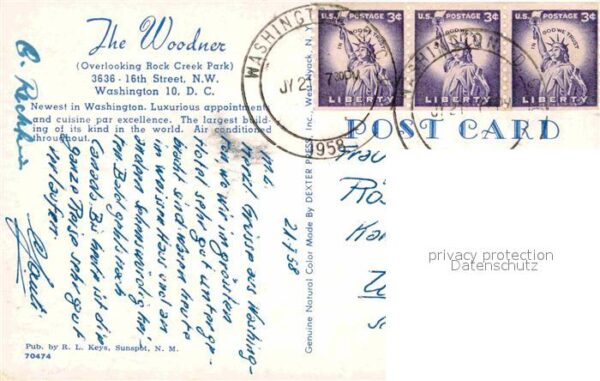 The Woodner
(Overlooking Rock Creek Park)
3636 - 16th Street, N.W.
Washington 10, D. C.
Newest in Washington. Luxurious appointments
and cuisine par excellence. The largest build-
ing of its kind in the world. Air conditioned
throughout.
Pub. by R. L. Keys, Sunspot, N. M.
70474
Genuine Natural Color Made By DEXTER PRESS, Inc., West Nyack, N. Y.
U.S. POSTAGE 3¢
IN GOD WE TRUST
LIBERTY
U.S. POSTAGE 3¢
LIBERTY
U.S. POSTAGE 3¢
IN GOD WE TRUST
LIBERTY
WASHINGTON
D.C.
JY 21
7 30 PM
1958
WASHINGTON, D
POST CARD
21.7.58
Grüsse aus Washing-
ton wo wir im grössten
Hotel sehr gut unterge-
bracht sind. Waren heute
im weissen Haus und an
Bald gehts nach
Canada. Bis heute ist die
ganze Reise sehr gut
verlaufen.
Frau
privacy protection
Datenschutz